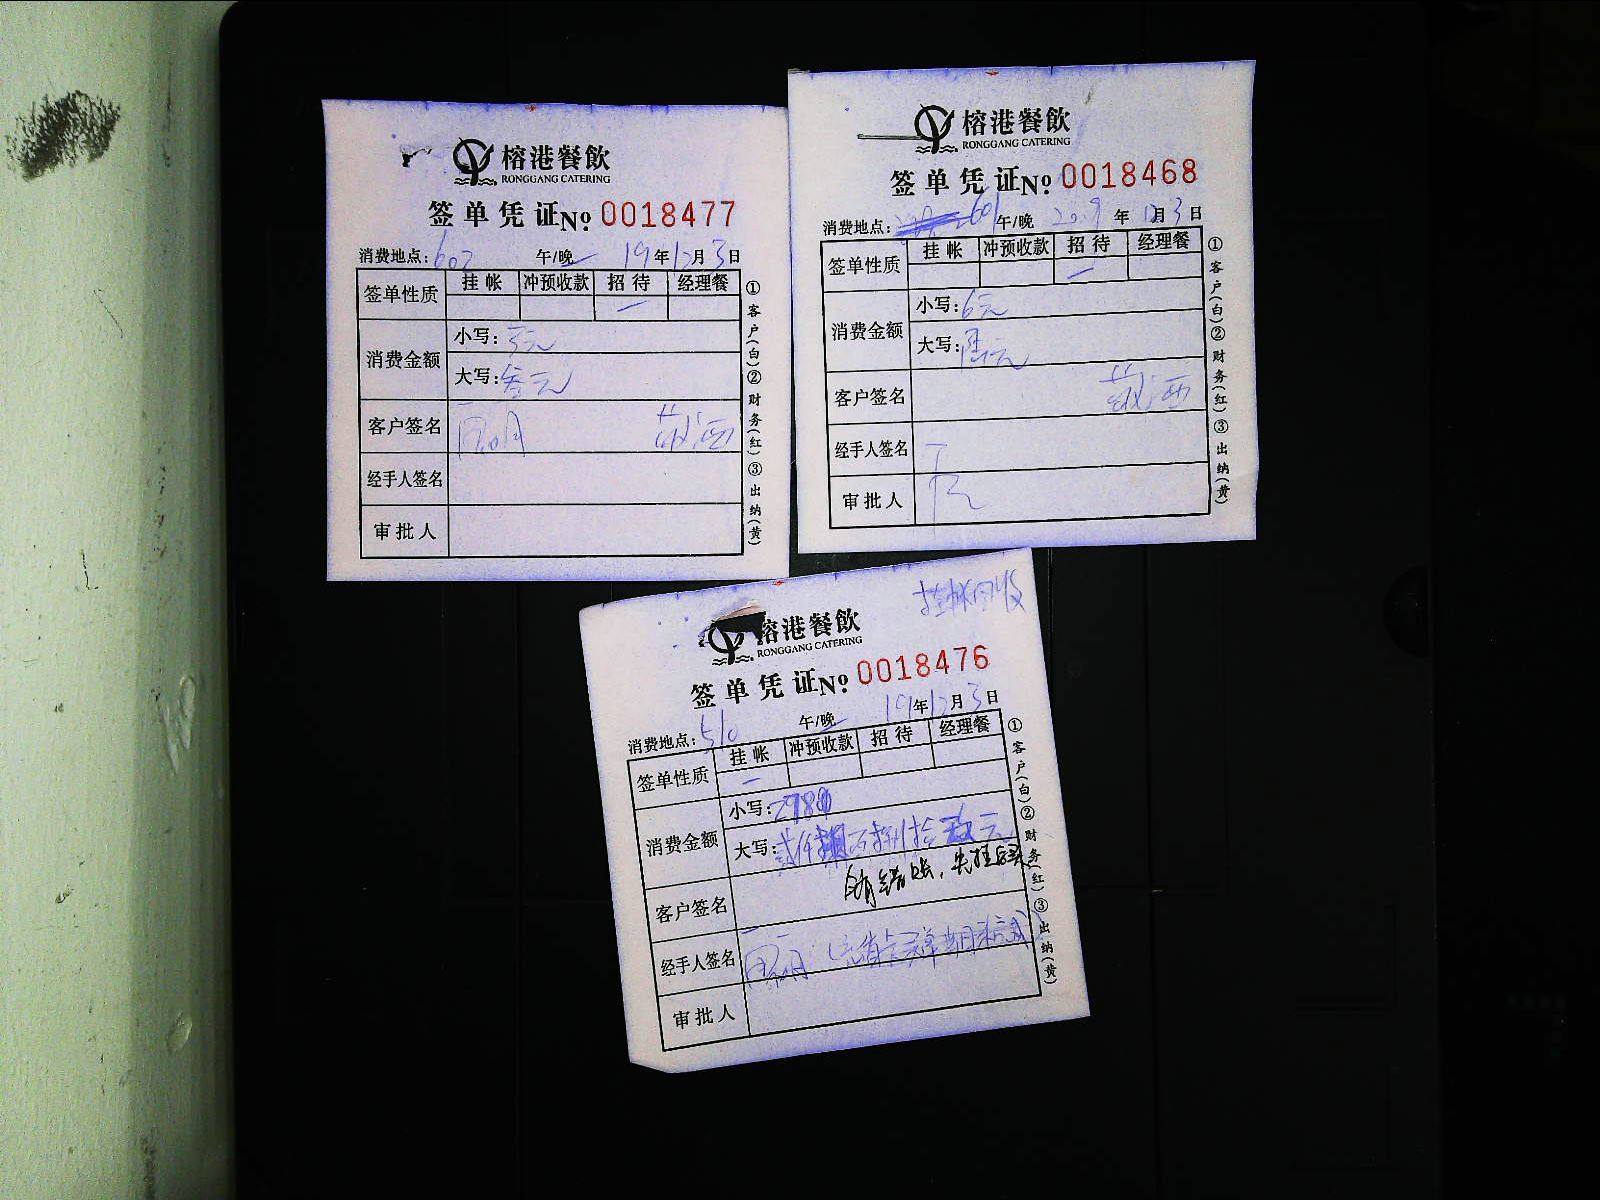 榕港餐飲
RONGGANG CATERING
签单凭证 No 0018477
消费地点: 602 午/晚 19年12月3日
签单性质 挂帐 冲预收款 招待 经理餐
消费金额 小写: 3元
大写: 叁元
客户签名
经手人签名
审批人
①客户(白)②财务(红)③出纳(黄)
榕港餐飲
RONGGANG CATERING
签单凭证 No 0018468
消费地点: 601 午/晚 2019年12月3日
签单性质 挂帐 冲预收款 招待 经理餐
消费金额 小写: 6元
大写: 陆元
客户签名
经手人签名
审批人
①客户(白)②财务(红)③出纳(黄)
挂帐回收
榕港餐飲
RONGGANG CATERING
签单凭证 No 0018476
消费地点: 510 午/晚 19年12月3日
签单性质 挂帐 冲预收款 招待 经理餐
消费金额 小写:
大写:
客户签名
经手人签名
审批人
①客户(白)②财务(红)③出纳(黄)